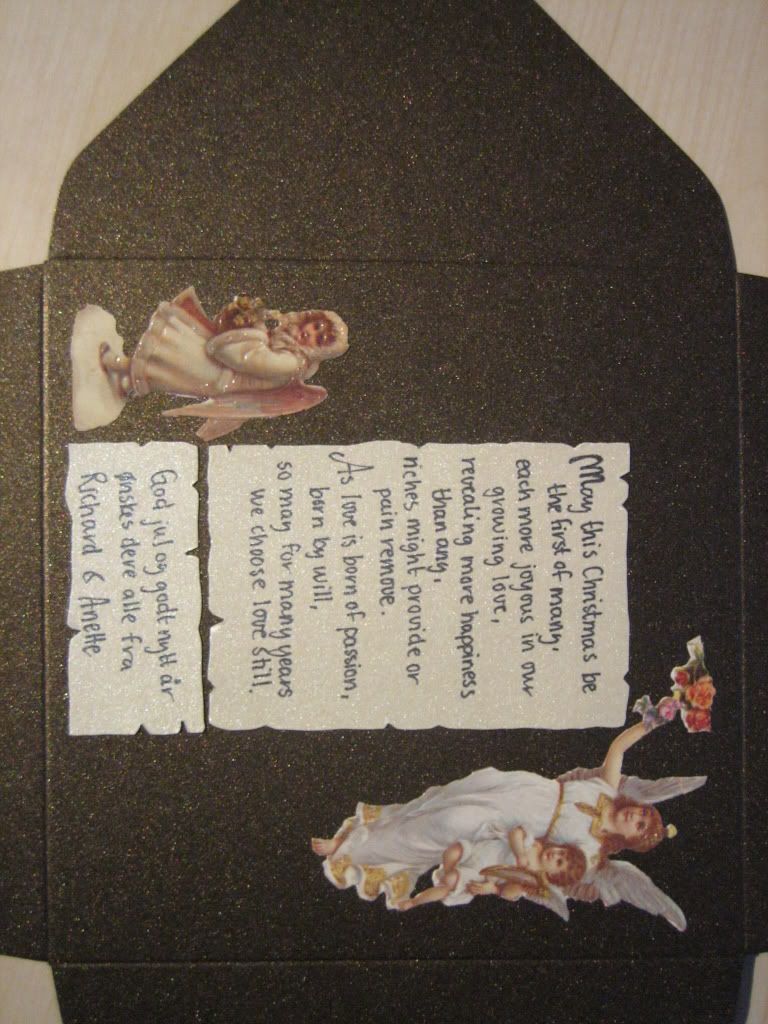 May this Christmas be
the first of many,
each more joyous in our
growing love,
revealing more happiness
than any,
riches might provide or
pain remove.
As love is born of passion,
born by will,
so may for many years
we choose love still.
God jul og godt nytt år
ønskes dere alle fra
Richard & Anette